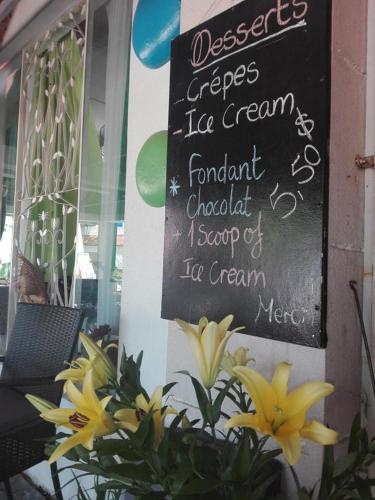 Desserts
- Crêpes
- Ice Cream
* Fondant
Chocolat
+ 1 Scoop of
Ice Cream
5,50$
Merci